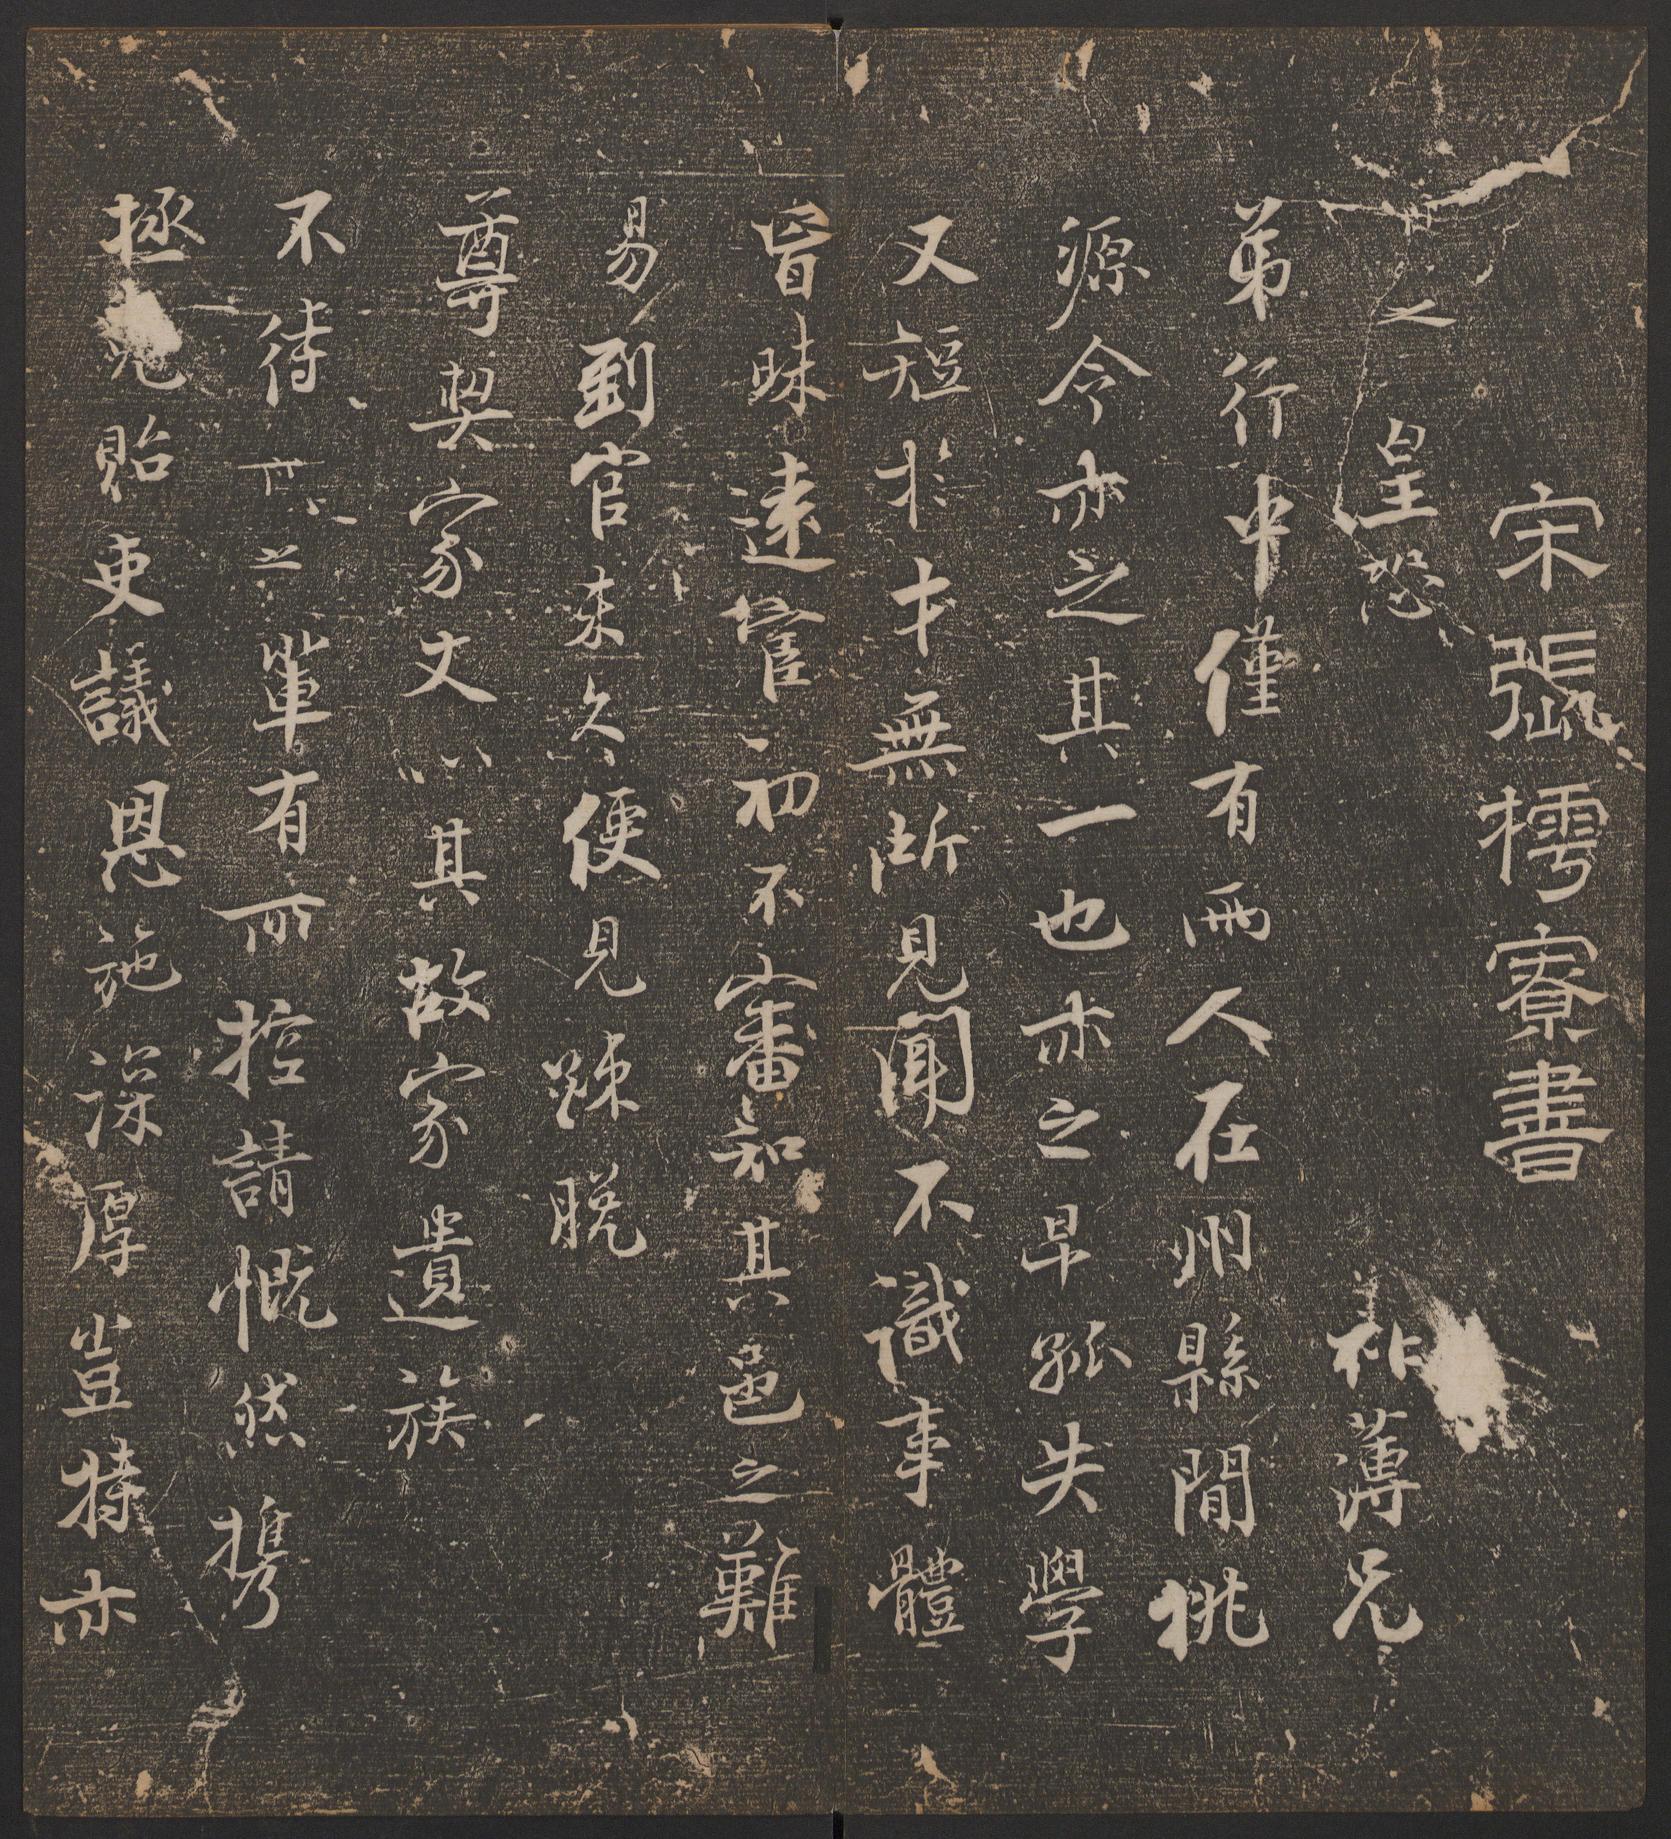 宋張樗寮書
之皇恐
祉薄兄
弟行中僅有兩人在州縣間桃
源令亦之其一也亦之早孤失學
又短於才無所見聞不識事體
冒昧遠宦初不審知其邑之難
易到官未久便見踈脫
尊契家丈以其故家遺族
不待之罪有所控請慨然携
拯免貽吏議恩施深厚豈特亦